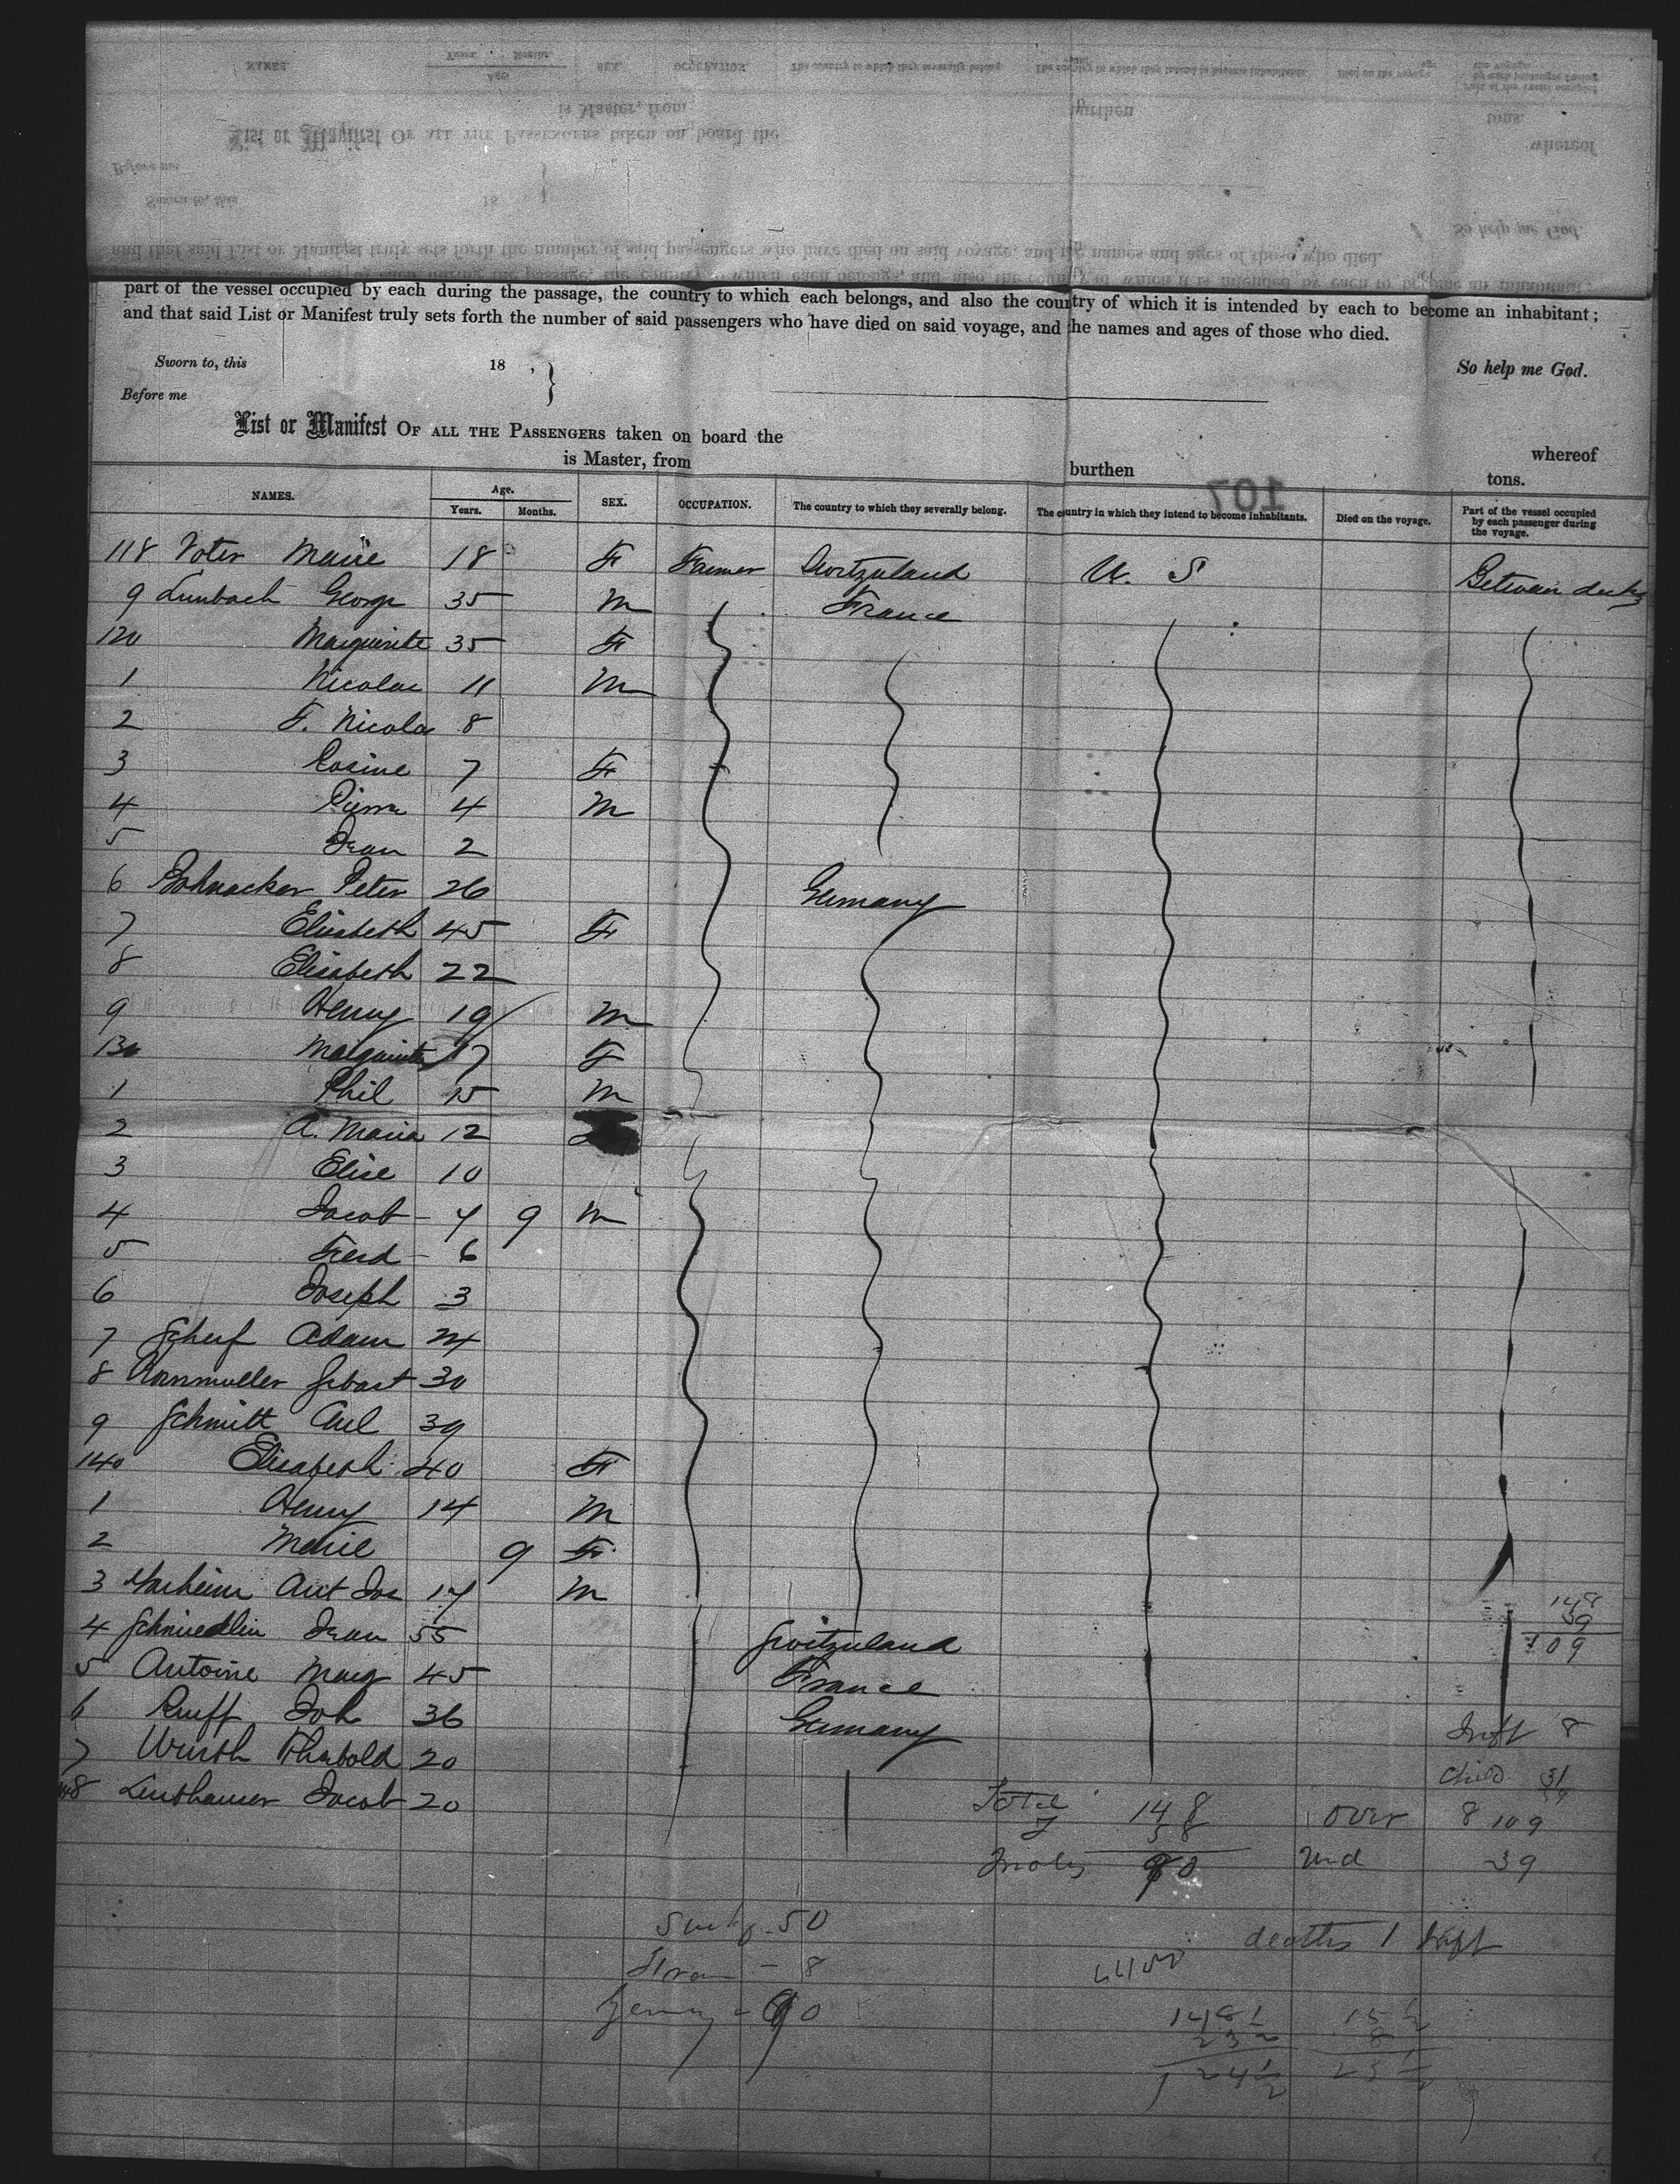 part of the vessel occupied by each during the passage, the country to which each belongs, and also the country of which it is intended by each to become an inhabitant;
and that said List or Manifest truly sets forth the number of said passengers who have died on said voyage, and the names and ages of those who died.
Sworn to, this 18 , } So help me God.
Before me
List or Manifest OF ALL THE PASSENGERS taken on board the whereof
is Master, from burthen tons.
107
NAMES. Age. Years. Months. SEX. OCCUPATION. The country to which they severally belong. The country in which they intend to become inhabitants. Died on the voyage. Part of the vessel occupied by each passenger during the voyage.
118 Voter Marie 18 F Farmer Switzerland U. S Between decks
9 Lumbach George 35 M France
120 Marguerite 35 F
1 Nicolas 11 M
2 F. Nicolas 8
3 Rosine 7 F
4 Pierre 4 M
5 Jean 2
6 Peter 26 Germany
7 Elisabeth 45 F
8 Elisabeth 22
9 Henry 19 M
130 Marguerite 17 F
1 Phil 15 M
2 A. Maria 12
3 Elise 10
4 Jacob - 7 9 M
5 Ferd - 6
6 Joseph 3
7 Scherf Adam 24
8 Kornmuller Sebast 30
9 Schmitt 39
140 Elisabeth 40 F
1 Henry 14 M
2 Marie 9 F
3 Jos 17 M
4 Schmiedlin Jean 55 Switzerland
5 Antoine Marg 45 France
6 Ruff Joh 36 Germany
7 Wursh 20
148 Jacob 20
148
39
109
Inft 8
Child 31
Total 148 over 8 109
F 58
Males 90 und 39
Switz - 50
Fran - 8
Germy - 90
deaths 1 Inft